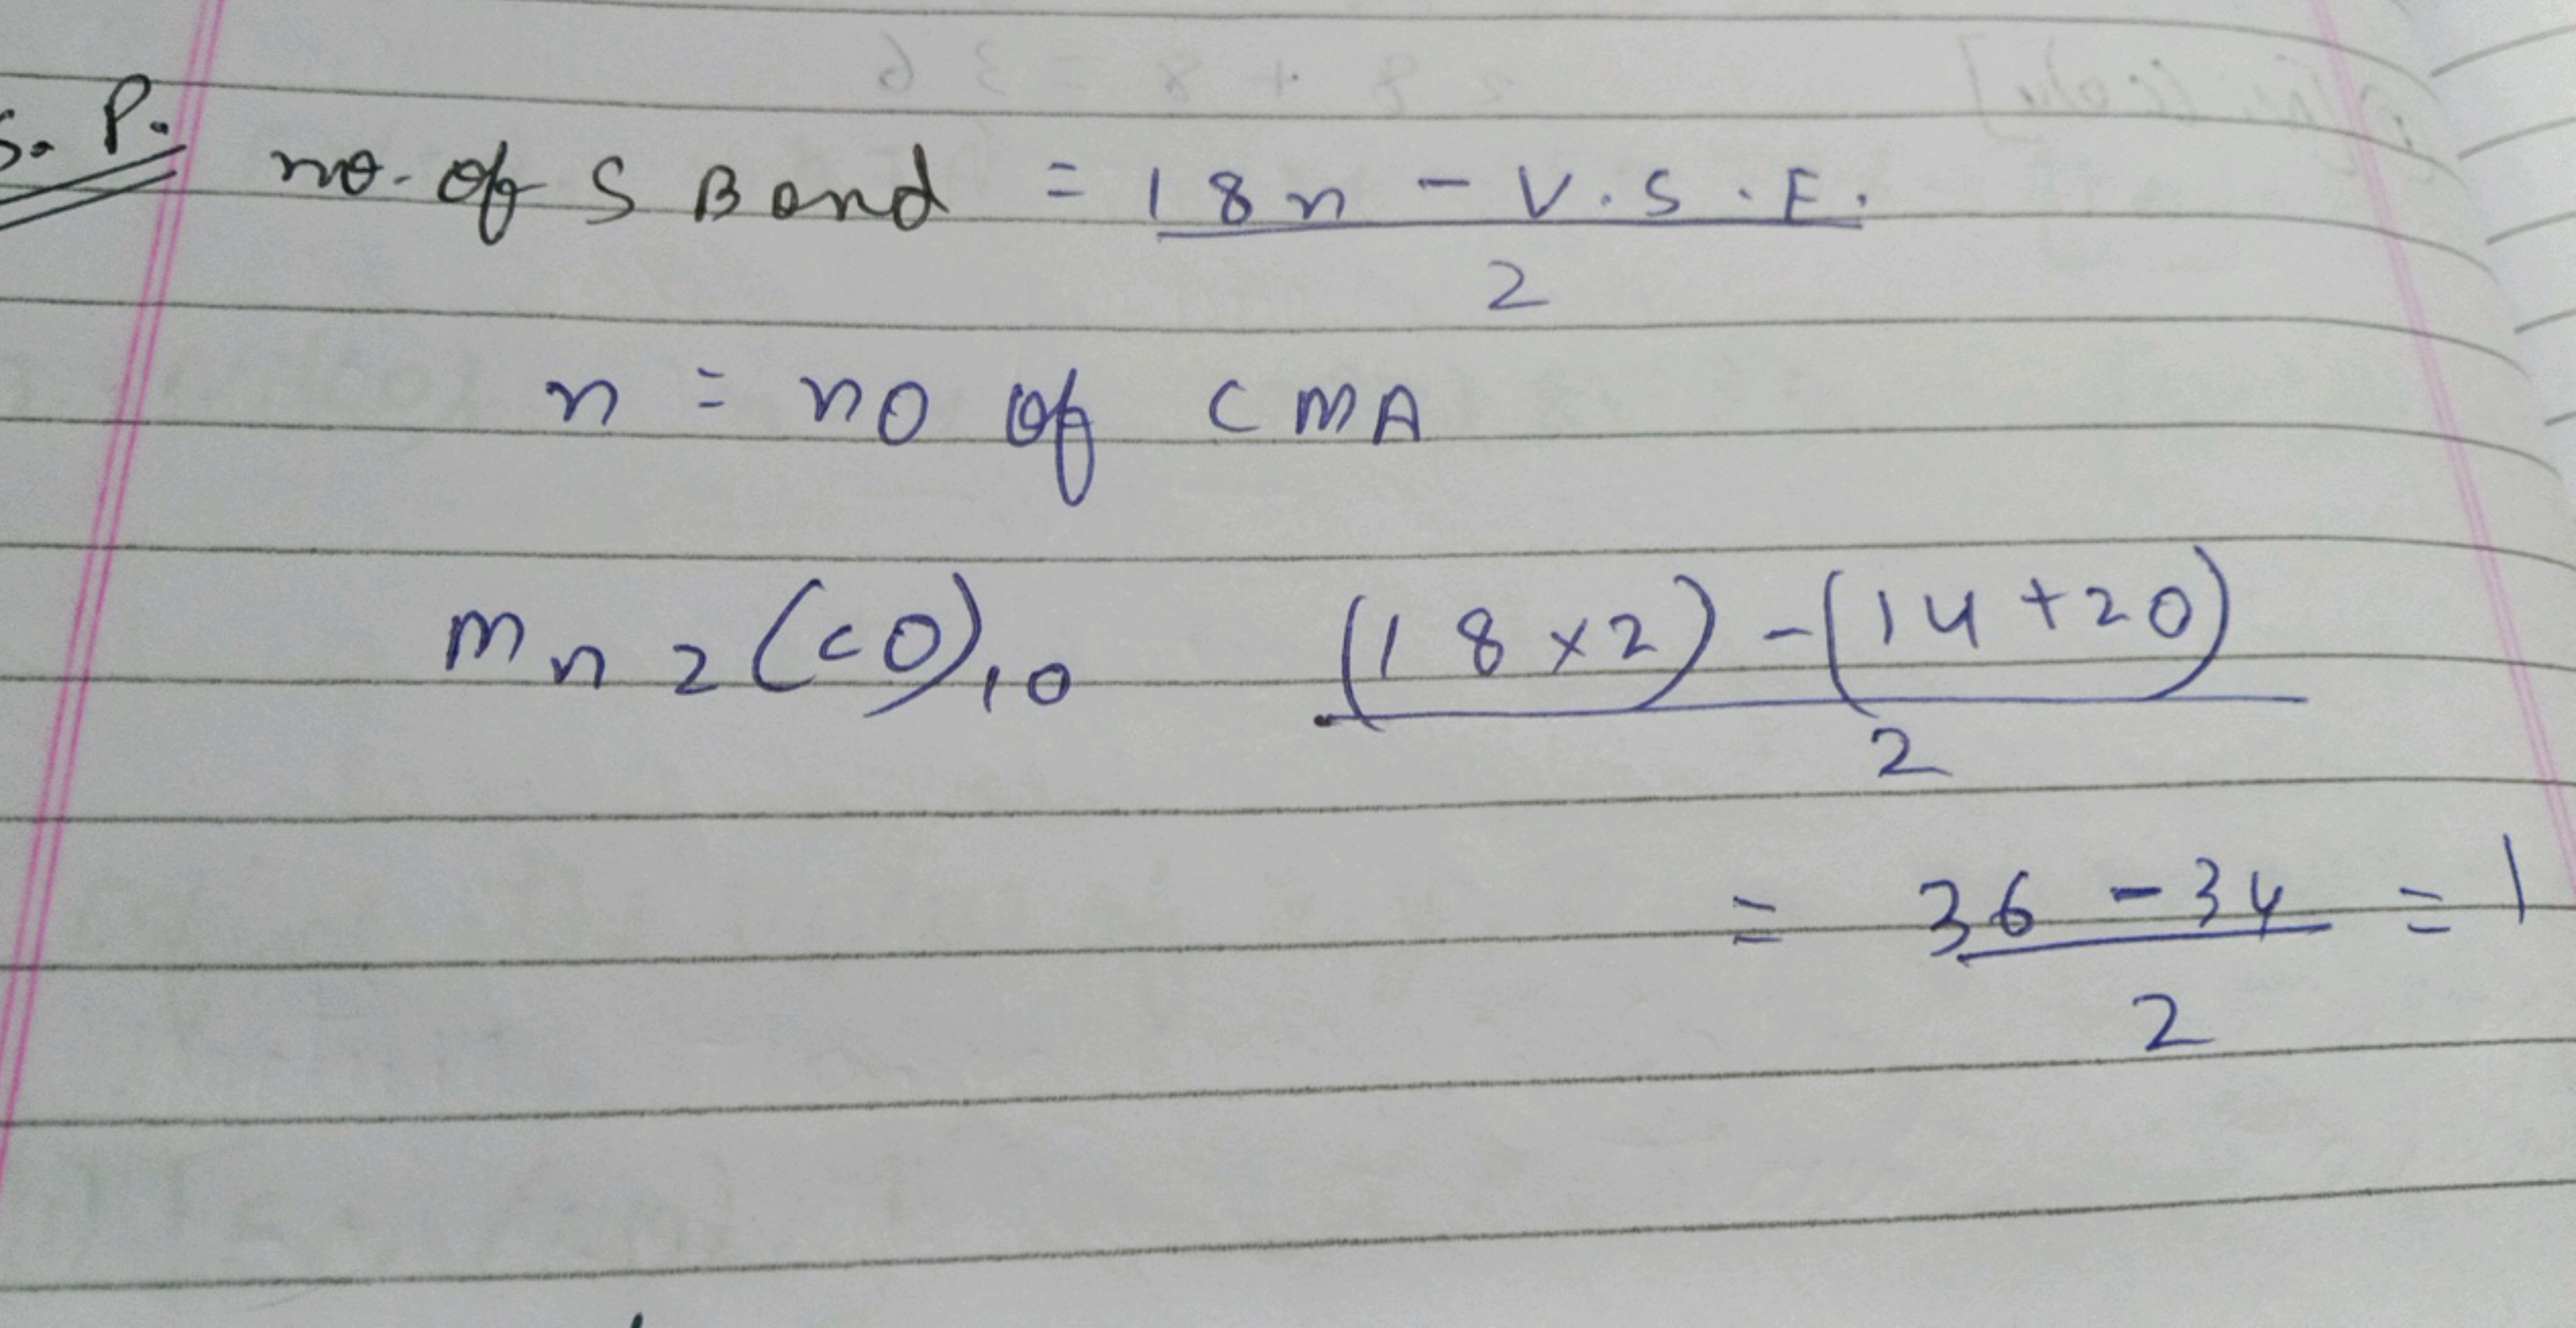 S. P.
no. of S Bond = 18n - V.S.E.
2
n = no of CMA
Mn2(CO)10 (18×2) - (14+20)
2
= 36 - 34 = 1
2